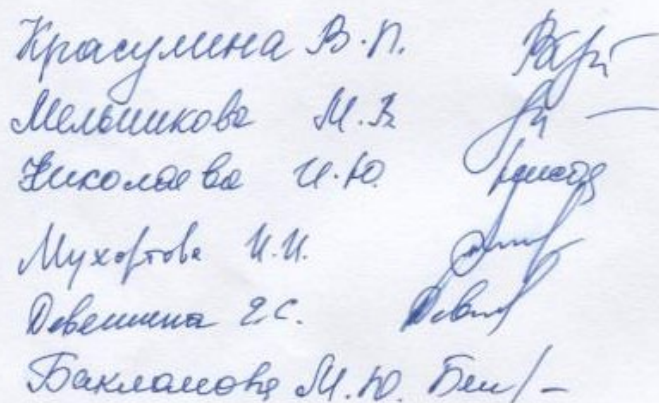 Красулина В.П.
Мельникова М.В
Николаева И.Ю.
Мухортова И.И.
Девешина Е.С.
Бакланова М.Ю.